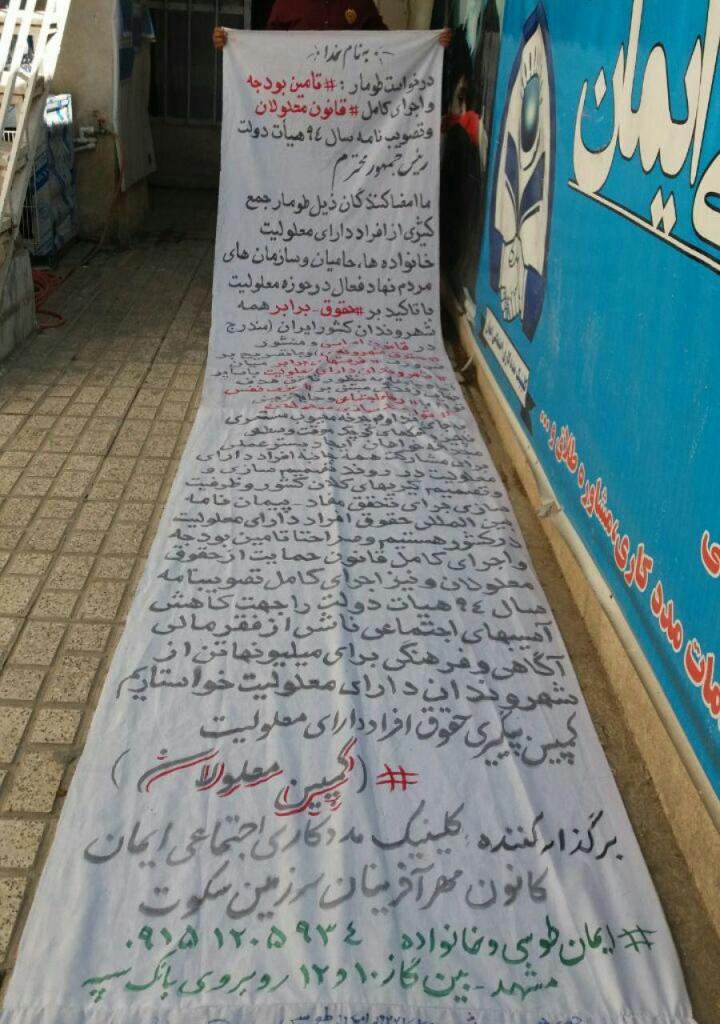 به نام خدا
درخواست طومار: #تامین بودجه
و اجرای کامل #قانون معلولان
و تصویب نامه سال ۹۴ هیات دولت
رئیس جمهور محترم
ما امضا کنندگان ذیل طومار جمع
کثیری از افراد دارای معلولیت
خانواده ها، حامیان و سازمان های
مردم نهاد فعال در حوزه معلولیت
با تاکید بر #حقوق_برابر همه
شهروندان کشور ایران (مندرج
در قانون اساسی و منشور
معلولیت در روند تصمیم سازی و
و تصمیم گیریهای کلان کشور و ظرفیت
سازی برای تحقق مفاد پیمان نامه
بین المللی حقوق افراد دارای معلولیت
در کشور هستیم و صراحتا تامین بودجه
و اجرای کامل قانون حمایت از حقوق
معلولان و نیز اجرای کامل تصویبنامه
سال ۹۴ هیات دولت را جهت کاهش
آسیبهای اجتماعی ناشی از فقر مالی
آگاهی و فرهنگی برای میلیونها تن از
شهروندان دارای معلولیت خواستاریم
کمپین پیگیری حقوق افراد دارای معلولیت
# (کمپین معلولان)
برگذار کننده: کلینیک مددکاری اجتماعی ایمان
کانون مهرآفرینان سرزمین سکوت
# ایمان طوسی و خانواده ۰۹۱۵۱۲۰۵۹۳۴
مشهد - بین گاز ۱۰ و ۱۲ روبروی بانک سپه
ایمان
مات مدد کاری، مشاوره طلاق و ...